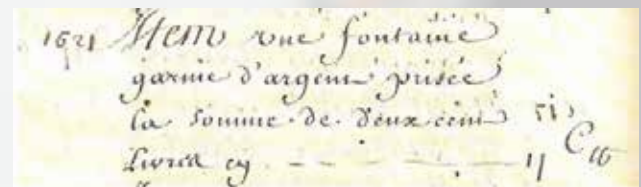 1621 Item une fontaine
garnie d'argent prisée
la somme de deux cent
Livres cy - - - - - II C tt